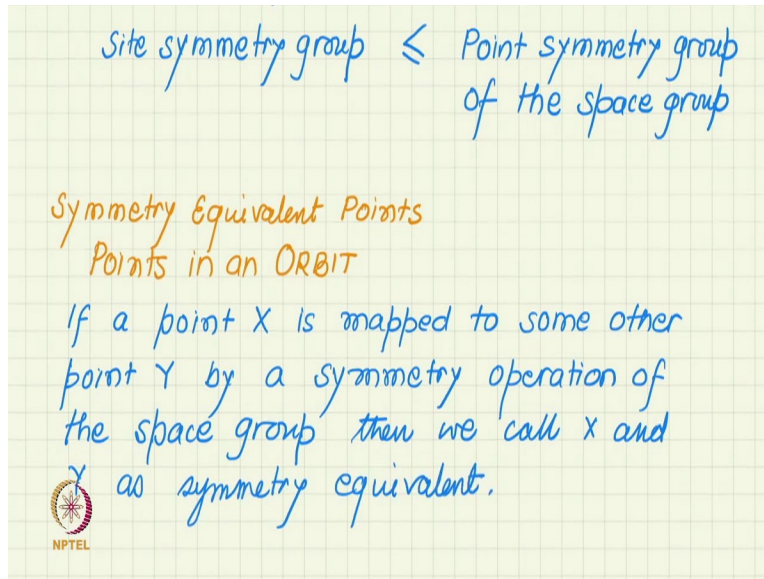 Site symmetry group ≤ Point symmetry group
of the space group
Symmetry Equivalent Points
Points in an ORBIT
If a point X is mapped to some other
point Y by a symmetry operation of
the space group then we call X and
Y as symmetry equivalent.
NPTEL